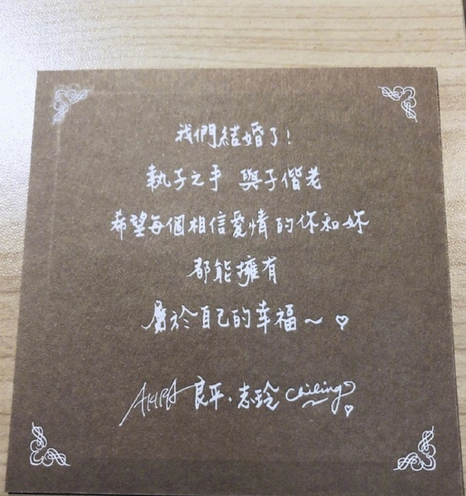 我們結婚了！
執子之手 與子偕老
希望每個相信愛情的你和妳
都能擁有
屬於自己的幸福～♡
AKIRA 良平．志玲 chiling♡